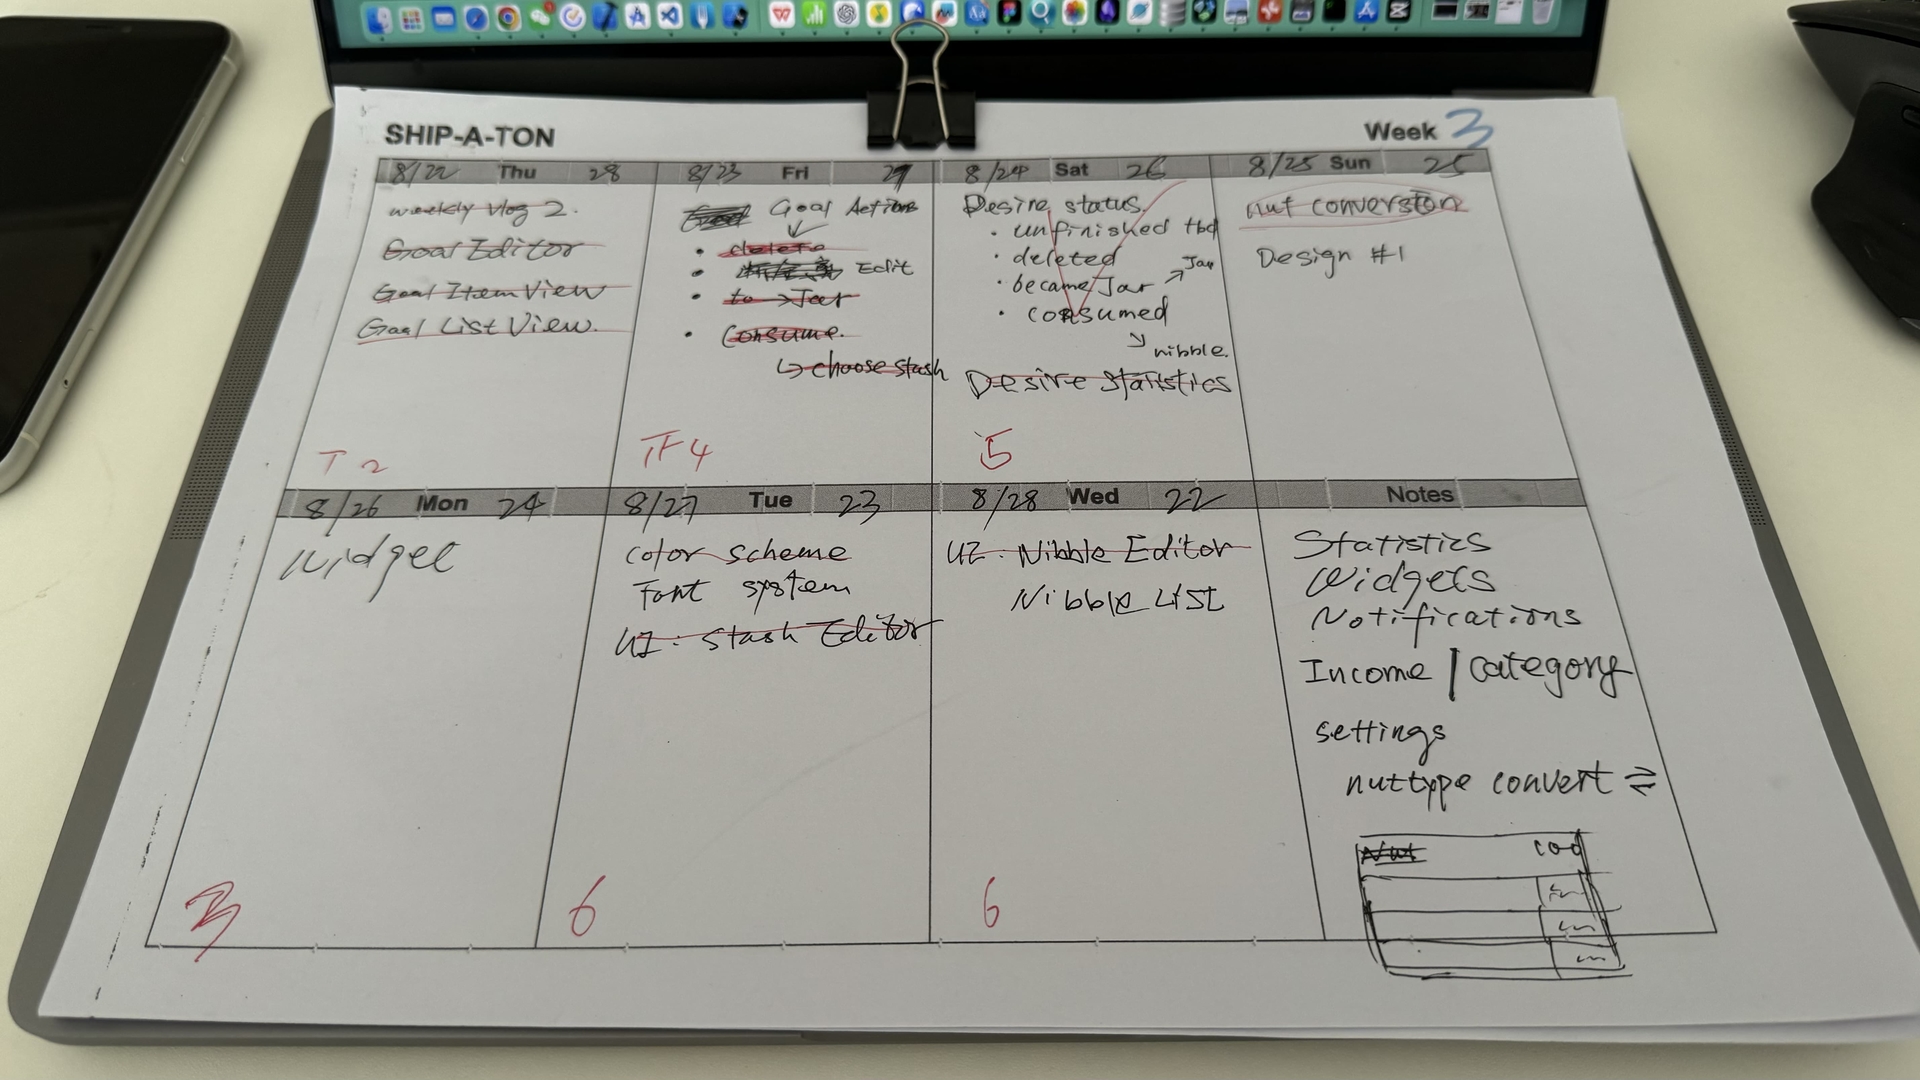 SHIP-A-TON
Week 3
8/22 Thu 28
weekly vlog 2.
Goal Editor
Goal Item View
Goal List View.
T 2
8/23 Fri 27
Goal Actions
• delete
• Edit
• to → Jar
• Consume.
↳ choose stash
正 4
8/24 Sat 26
Desire status.
• unfinished tbd
• deleted
• became Jar ↗ Jar
• consumed
↘ nibble.
Desire Statistics
5
8/25 Sun 25
nut conversion
Design #1
8/26 Mon 24
Widget
3
8/27 Tue 23
color scheme
Font system
UI: Stash Editor
6
8/28 Wed 22
UI: Nibble Editor
Nibble List
6
Notes
Statistics
Widgets
Notifications
Income / category
settings
nuttype convert ⇄
Nut